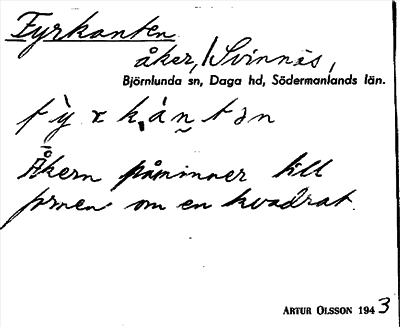 Fyrkanten
åker, Svinnäs,
Björnlunda sn, Daga hd, Södermanlands län.
Åkern påminner till
formen om en kvadrat.
ARTUR OLSSON 1943